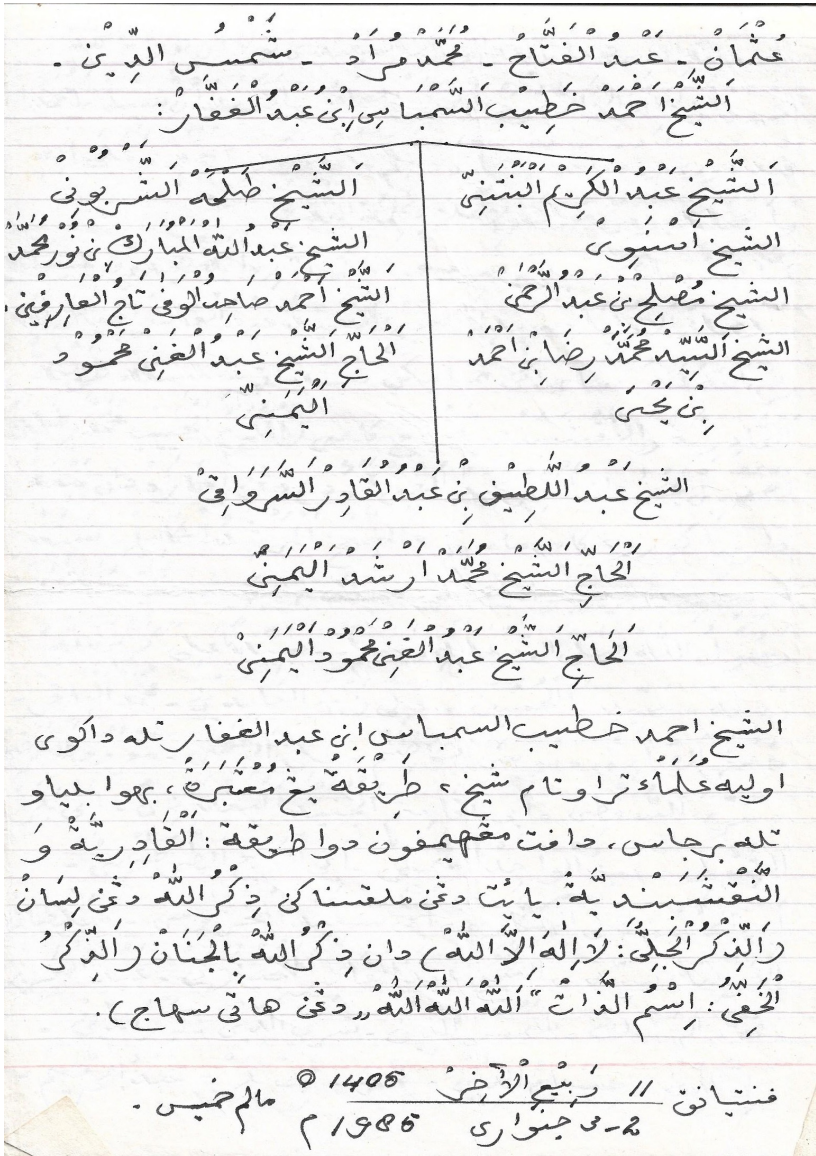 عُثْمَانْ - عَبْدُ الْفَتَّاحْ - مُحَمَّدْ مُرَادْ - شَمْسُ الدِّيْن -
اَلشَّيْخْ اَحْمَدْ خَطِيْب اَلسَّمْبَاسِ اِبْنُ عَبْدُ الْغَفَّارْ :
اَلشَّيْخْ عَبْدُ الْكَرِيْم اَلْبَنْتَنِىّ
الشيخ اَسْنَوِىْ
الشيخ مُصْلِحْ بْنُ عَبْدُ الرَّحْمٰنْ
الشيخ اَلسَّيِّدْ مُحَمَّدْ رِضَا بْنُ اَحْمَدْ
بِنْ يَحْيَى
اَلشَّيْخ طَلْحَهْ اَلشَّرْبُوْنِىْ
الشيخ عَبْدُ اللّٰه الْمُبَارَكْ بِنْ نُوْر مُحَمَّدْ
اَلشَّيْخ اَحْمَدْ صَاحِبُ الْوَفٰى تَاجُ الْعَارِفِيْن .
اَلْحَاجِّ اَلشَّيْخْ عَبْدُ الْغَنِىْ مَحْمُوْد
اَلْيَمَنِىّ
الشيخ عَبْدُ اللَّطِيْف بِنْ عَبْدُ الْقَادِرْ اَلسَّرَوَاقِىْ
اَلْحَاجِّ اَلشَّيْخ مُحَمَّدْ اَرْشَدْ اَلْيَمَنِىْ
اَلْحَاجِّ اَلشَّيْخ عَبْدُ الْغَنِىْ مَحْمُوْد اَلْيَمَنِىْ
الشيخ احمد خطيب السمباس ابن عبد الغفار تله داكوى
اوليه عُلَمَاء تراوتام شيخ ٢ طَرِيْقَةْ يڠ مُعْتَبَرَةْ ، بهوا بلياو
تله برجاس، داڤت مڠهيمڤون دوا طريقة : اَلْقَادِرِيَّةْ وَ
النَّقْشَبَنْدِيَّةْ. يائت دڠن ملقسناكن ذِكْرُ اللّٰهْ دڠن لِسَانْ
(اَلذِّكْرُ الْجَلِىُّ : لَا اِلٰهَ اِلَّا اللّٰهْ) دان ذِكْرُ اللّٰهْ بِالْجَنَانْ (اَلذِّكْرُ
الْخَفِىُّ : اِسْمُ الذَّاتْ "اَللّٰهْ اَللّٰهْ اَللّٰهْ" دڠن هاتى سهاج).
فنتيانق 11 رَبِيْعُ الْاٰخِرْ 1405 ه مالم خميس .
2-3 جنوارى 1985 م